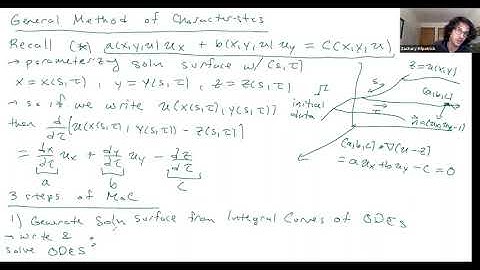 General Method of Characteristics
Recall (*) a(x,y,u) ux + b(x,y,u) uy = C(x,y,u)
→ parameterize soln surface w/ (s,τ)
x = x(s,τ), y = y(s,τ), z = z(s,τ)
→ so if we write u(x(s,τ), y(s,τ))
then d/dτ [u(x(s,τ), y(s,τ)) - z(s,τ)]
= dx/dτ ux + dy/dτ uy - dz/dτ
a b c
3 steps of MoC
1) Generate soln surface from Integral Curves of ODEs
→ write &
solve ODEs :
Zachary Kilpatrick
z = u(x,y)
Γ
s
(a,b,c)
initial
data
τ
n = (ux, uy, -1)
(a,b,c) • ∇(u - z)
= a ux + b uy - c = 0